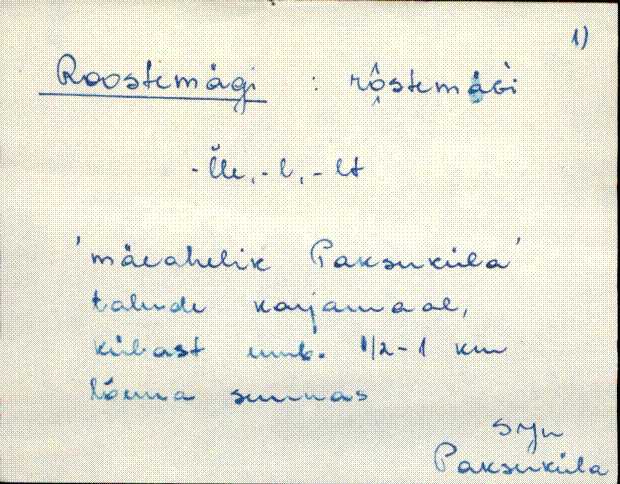 1)
Roostemägi : rộ̂stemäǵi
-l̄le, -l, -lt
'mäeahelik Paksuküla'
talude karjamaal,
külast umb. 1/2-1 km
lõuna suunas
Sjn
Paksuküla